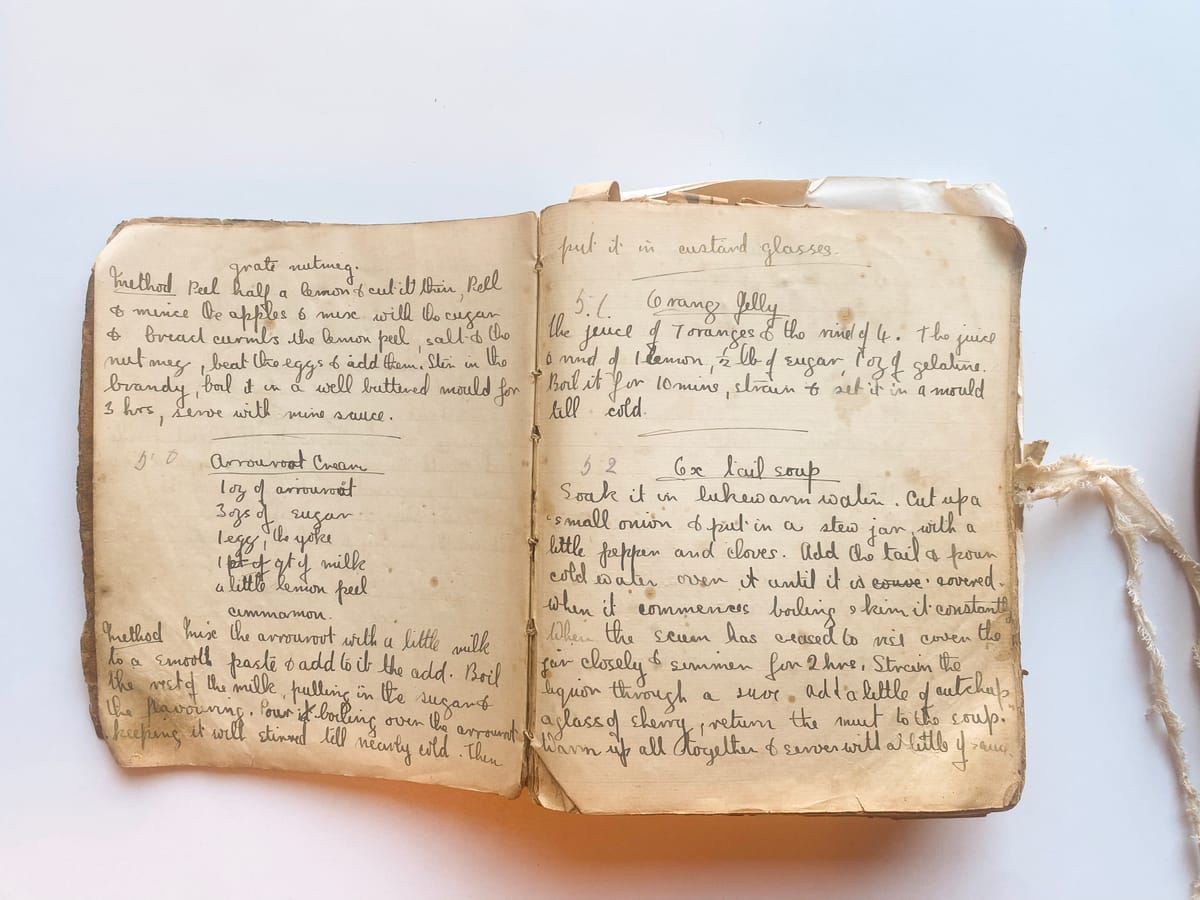 grate nutmeg.
Method Peel half a lemon & cut it thin, Pell
& mince the apples & mix with the sugar
& bread curmbs the lemon peel, salt & the
nutmeg, beat the eggs & add them. Stir in the
brandy, boil it in a well buttered mould for
3 hrs, serve with wine sauce.
50 Arrouroot Cream
1 oz of arrouroot
3 ozs of sugar
1 egg, the yoke
1 pt of qt of milk
a little lemon peel
cinnamon.
Method Mix the arrouroot with a little milk
to a smooth paste & add to it the add. Boil
the rest of the milk, putting in the sugar &
the flavouring. Pour it boiling over the arrouroot
keeping it well stirred till nearly cold. Then
put it in custard glasses.
51. Orang Jelly
The jeuce of 7 oranges & the rind of 4. The juice
& rind of 1 lemon, ½ lb of sugar, 1 oz of gelatine.
Boil it for 10 mins, strain & set it in a mould
till cold.
52 Ox tail soup
Soak it in lukewarm water. Cut up a
small onion & put in a stew jar, with a
little pepper and cloves. Add the tail & pour
cold water over it until it is couve covered.
When it commences boiling skim it constantly
When the scum has ceased to rise cover the
jar closely & simmer for 2 hrs. Strain the
liquor through a sieve. Add a little of cutchup
a glass of sherry, return the meet to the soup.
Warm up all together & server with a little of